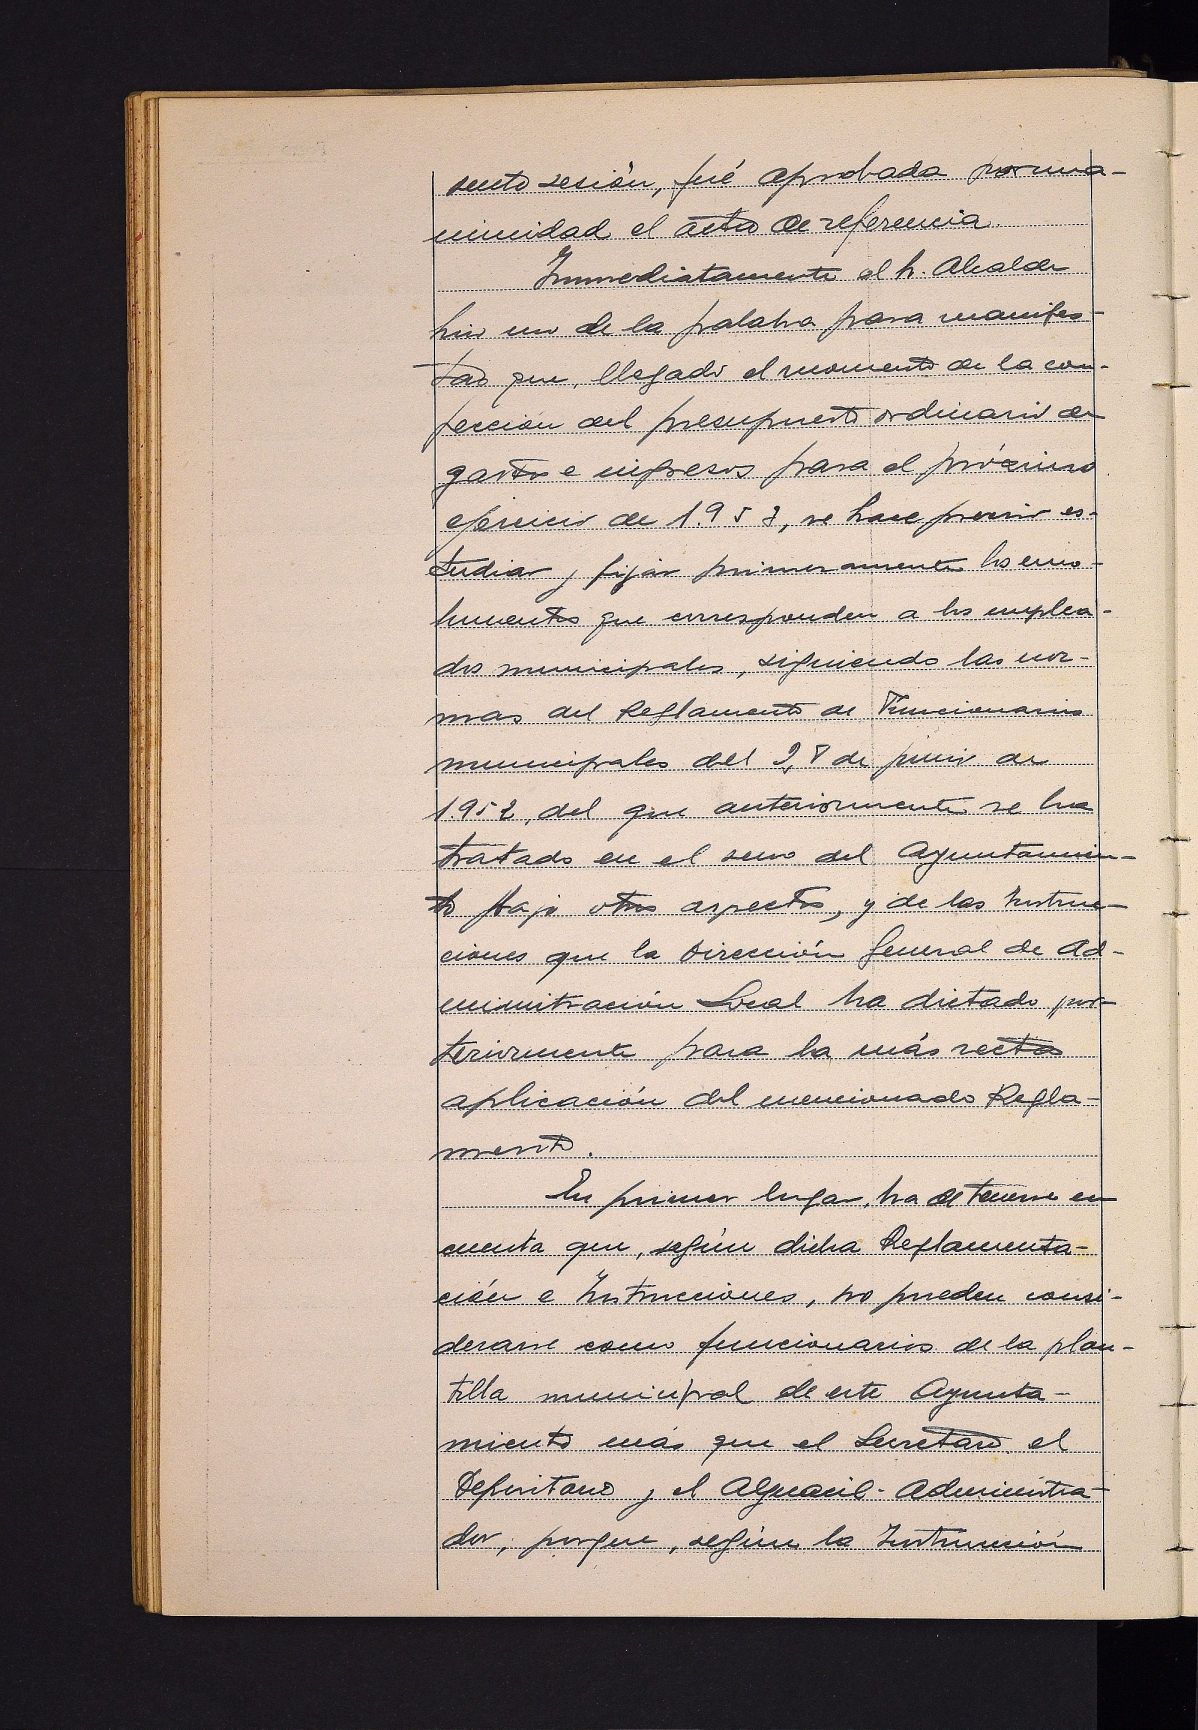 sente sesión, fué aprobada por una-
nimidad el acta de referencia.
Inmediatamente el Sr. Alcalde
hizo uso de la palabra para manifes-
tar que, llegado el momento de la con-
fección del presupuesto ordinario de
gastos e ingresos para el próximo
ejercicio de 1.953, se hace preciso es-
tudiar y fijar primeramente los emo-
lumentos que corresponden a los emplea-
dos municipales, siguiendo las nor-
mas del Reglamento de Funcionarios
municipales del 28 de junio de
1.952, del que anteriormente se ha
tratado en el seno del Ayuntamien-
to bajo otros aspectos, y de las Instruc-
ciones que la Dirección General de Ad-
ministración Local ha dictado pos-
teriormente para la más recta
aplicación del mencionado Regla-
mento.
En primer lugar, ha de tenerse en
cuenta que, según dicha Reglamenta-
ción e Instrucciones, no pueden consi-
derarse como funcionarios de la plan-
tilla municipal de este Ayunta-
miento más que el Secretario, el
Depositario y el Alguacil-Administra-
dor, porque, según la Instrucción